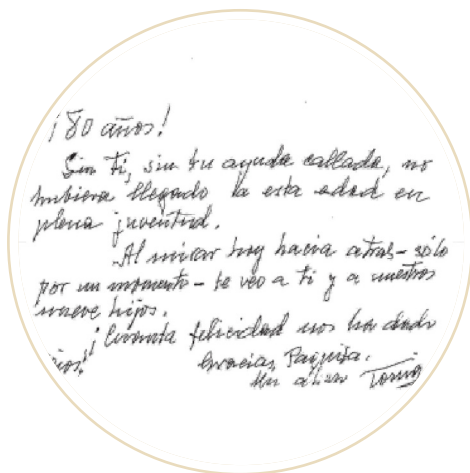 ¡80 años!
Sin ti, sin tu ayuda callada, no
hubiera llegado a esta edad en
plena juventud.
Al mirar hoy hacia atras - sólo
por un momento - te veo a ti y a nuestros
nueve hijos.
¡Cuanta felicidad nos ha dado
Gracias, Paquita.
Un abrazo